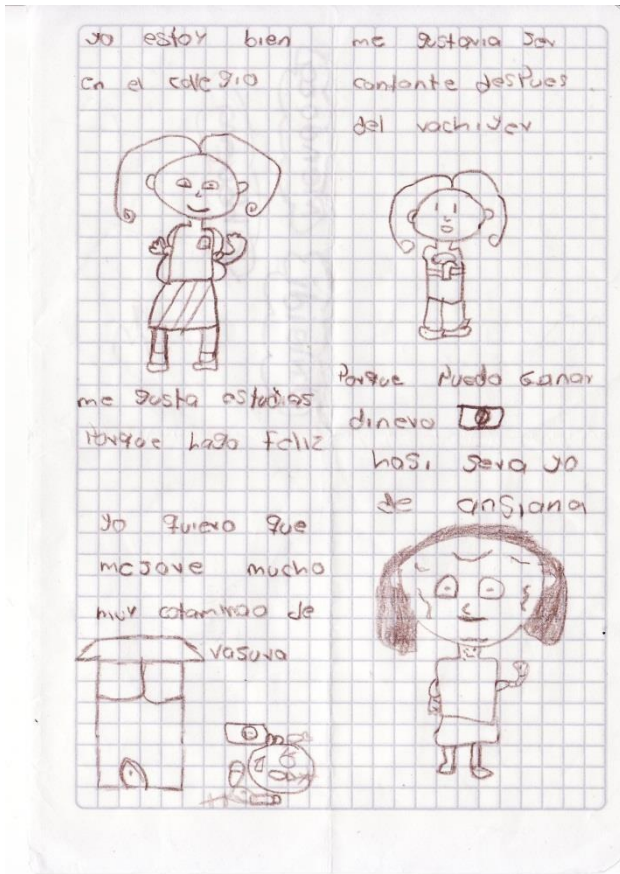 yo estoy bien
en el colegio
me gusta estudias
Porque hago Feliz
yo quiero que
mejore mucho
muy cotaminao de
vasura
me gustaria ser
cantante despues
del vachiyer
Porque Puedo Ganar
dinero
hasi sera yo
de ansiana